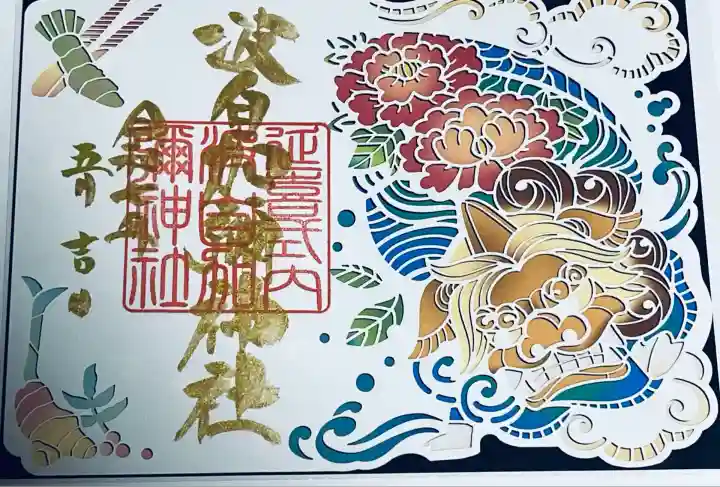 波自加彌神社
延喜式内
波自加
彌神社
五月吉日